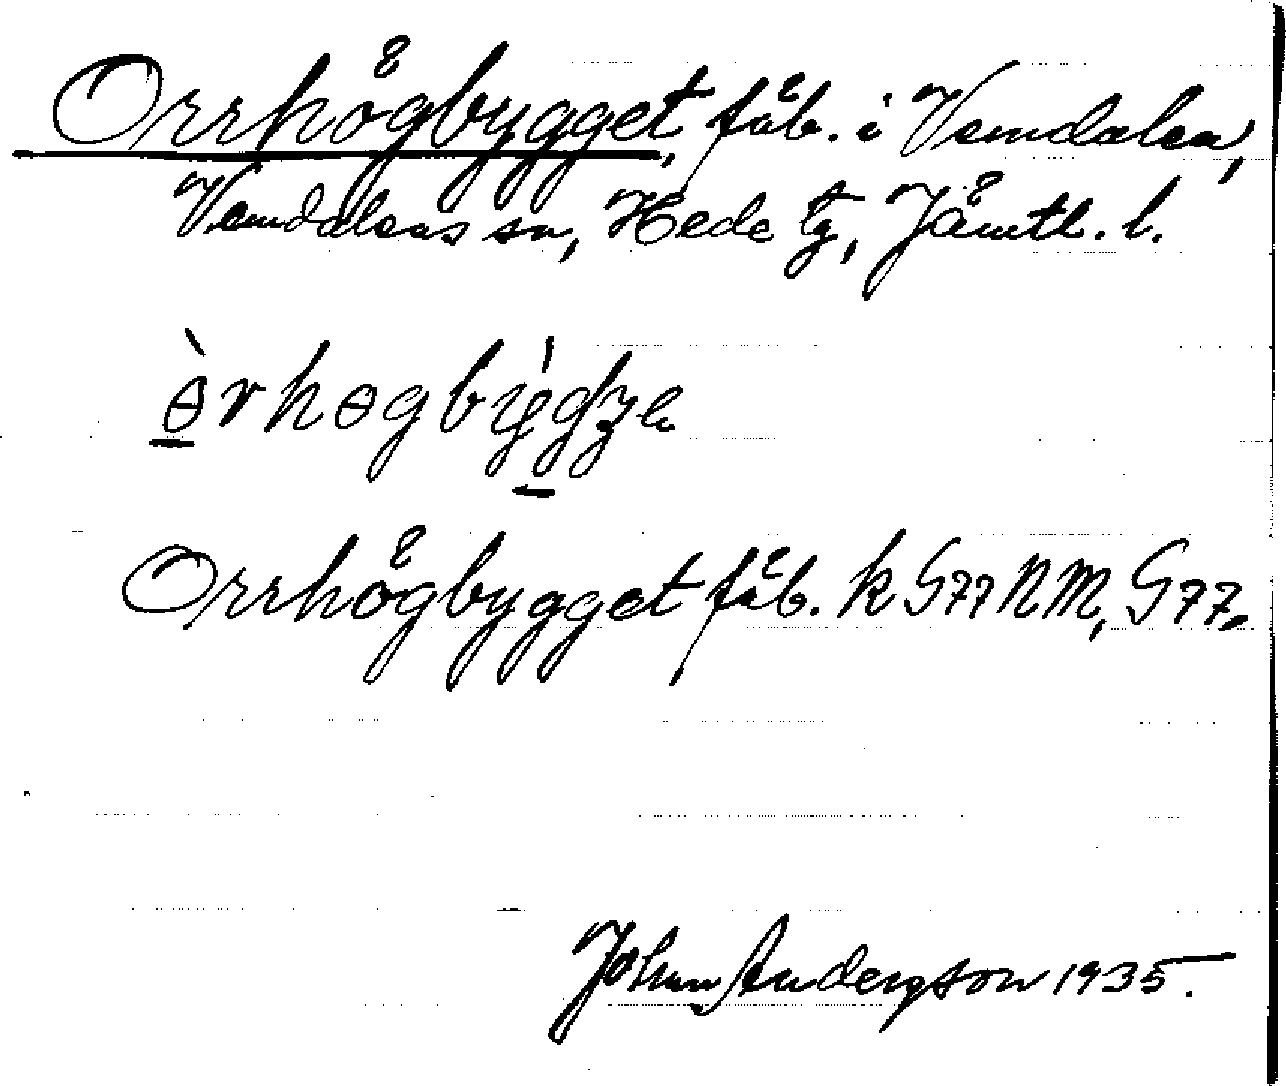 Orrhögbygget, fäb. i Vemdalen,
Vemdalens sn, Hede tg, Jämtl. l.
ɵ̀rhɵgbýgʒe
Orrhögbygget fäb. k G77 NM, G77.
Johan Andersson 1935.